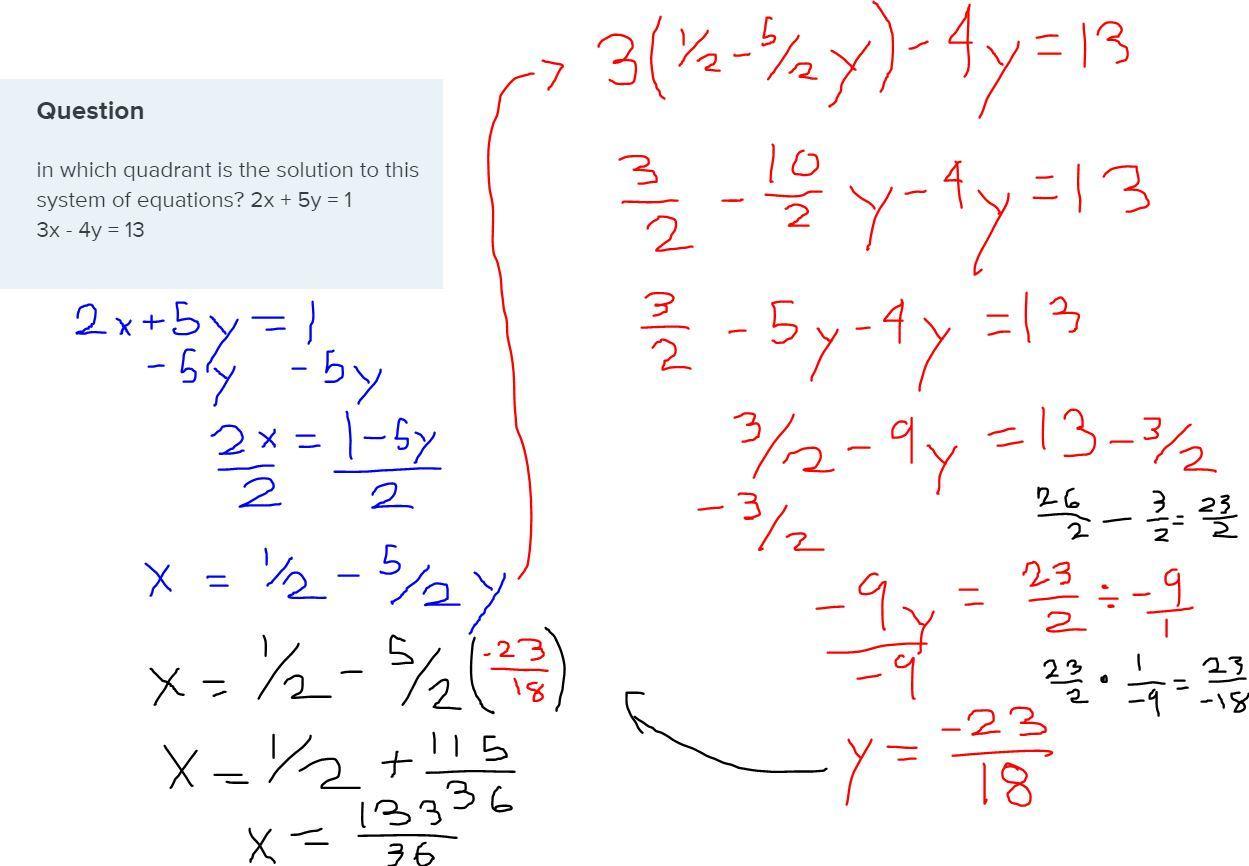 Question
in which quadrant is the solution to this
system of equations? 2x + 5y = 1
3x - 4y = 13
2x+5y=1
-5y -5y
2x = 1-5y
2 2
x = 1/2 - 5/2 y
x = 1/2 - 5/2 (-23/18)
x = 1/2 + 115/36
x = 133/36
3(1/2 - 5/2 y) - 4y = 13
3/2 - 10/2 y - 4y = 13
3/2 - 5y - 4y = 13
3/2 - 9y = 13 - 3/2
-3/2
26/2 - 3/2 = 23/2
-9y/-9 = 23/2 ÷ -9/1
23/2 · 1/-9 = 23/-18
y = -23/18